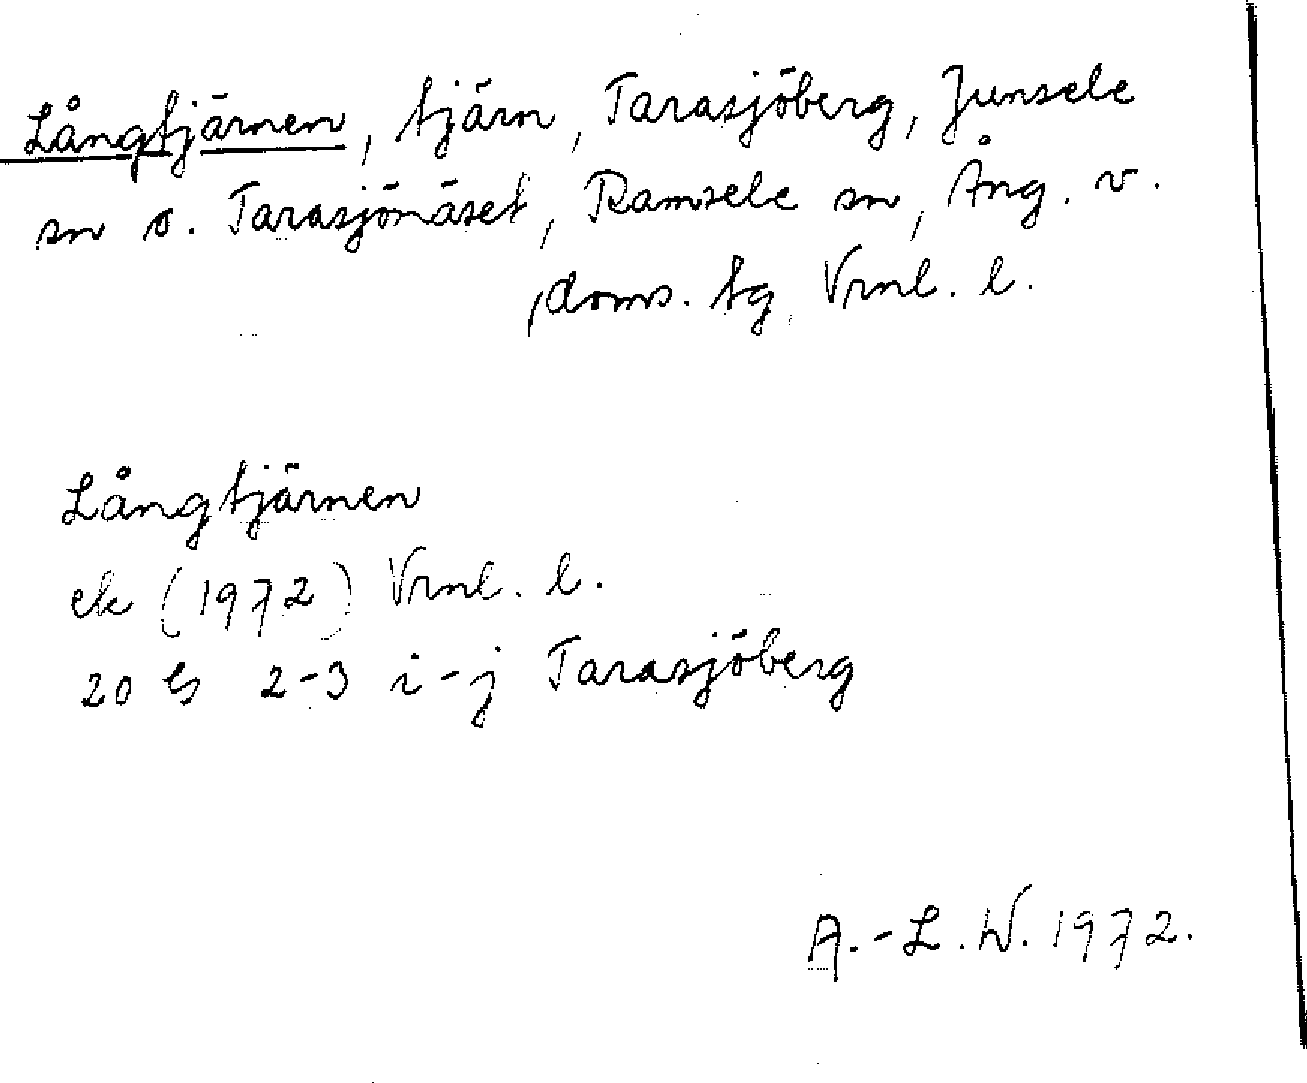 Långtjärnen, tjärn, Tarasjöberg, Junsele
sn o. Tarasjönäset, Ramsele sn, Ång. v.
doms. tg, Vrnl. l.
Långtjärnen
ek (1972) Vrnl. l.
20 G 2-3 i-j Tarasjöberg
A.-L. W. 1972.